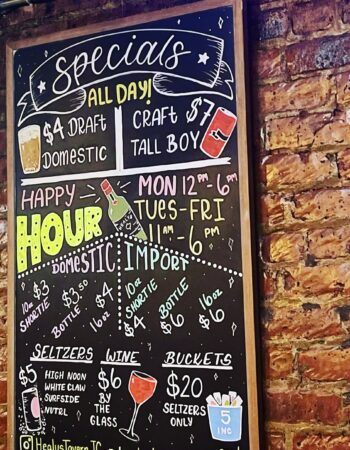 Specials
ALL DAY!
$4 DRAFT
DOMESTIC
CRAFT $7
TALL BOY
HAPPY
HOUR
MON 12PM-6PM
TUES-FRI
11AM-6PM
DOMESTIC
IMPORT
10oz $3
SHORTIE
$3.50
BOTTLE
$4
16oz
10oz
SHORTIE
$4
BOTTLE
$6
16oz
$6
SELTZERS
$5
HIGH NOON
WHITE CLAW
SURFSIDE
NUTRL
WINE
$6
BY
THE
GLASS
BUCKETS
$20
SELTZERS
ONLY
5
INC
HealysTavern JC